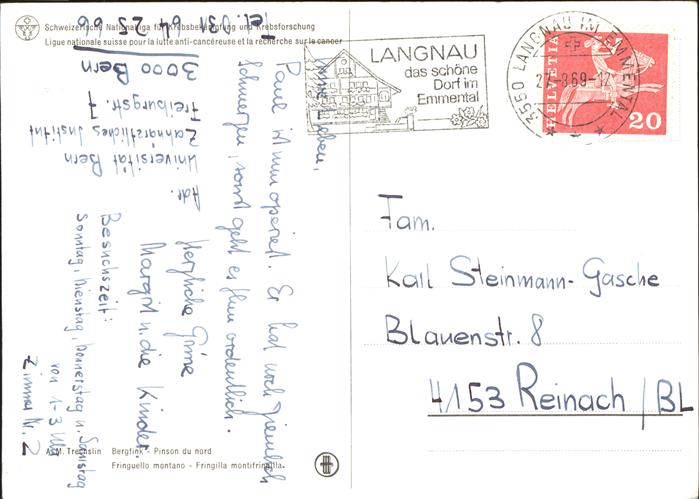 Schweizerische Nationalliga für Krebsbekämpfung und Krebsforschung
Ligue nationale suisse pour la lutte anti-cancéreuse et la recherche sur le cancer
LANGNAU
das schöne
Dorf im
Emmental
3550 LANGNAU IM EMMENTAL
27-8.69-12
HELVETIA
20
Fam.
Karl Steinmann-Gasche
Blauenstr. 8
4153 Reinach/BL
Lieben,
Paul ist nun operiert. Er hat noch ziemlich
Schmerzen, sonst geht es ihm ordentlich.
Herzliche Grüsse
Margrit u. die Kinder.
Adr.
Universität Bern
Zahnärztliches Institut
Freiburgstr. 7
3000 Bern
Tel. 031 64 25 66
Besuchszeit:
Sonntag, Dienstag, Donnerstag u. Samstag
von 1-3 Uhr
Zimmer Nr. 2
A. M. Trechslin Bergfink - Pinson du nord
Fringuello montano - Fringilla montifringilla.